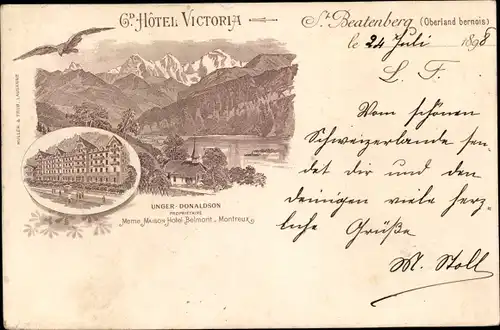 Gd. HÔTEL VICTORIA
St. Beatenberg (Oberland bernois)
le 24 Juli 1898
L. F.
Vom schönen
Schweizerlande sen-
det dir und den
deinigen viele herz-
liche Grüße
M. Stoll
UNGER-DONALDSON
PROPRIÉTAIRE
MÊME MAISON HÔTEL BELMONT, MONTREUX
MÜLLER & TRÜB, LAUSANNE